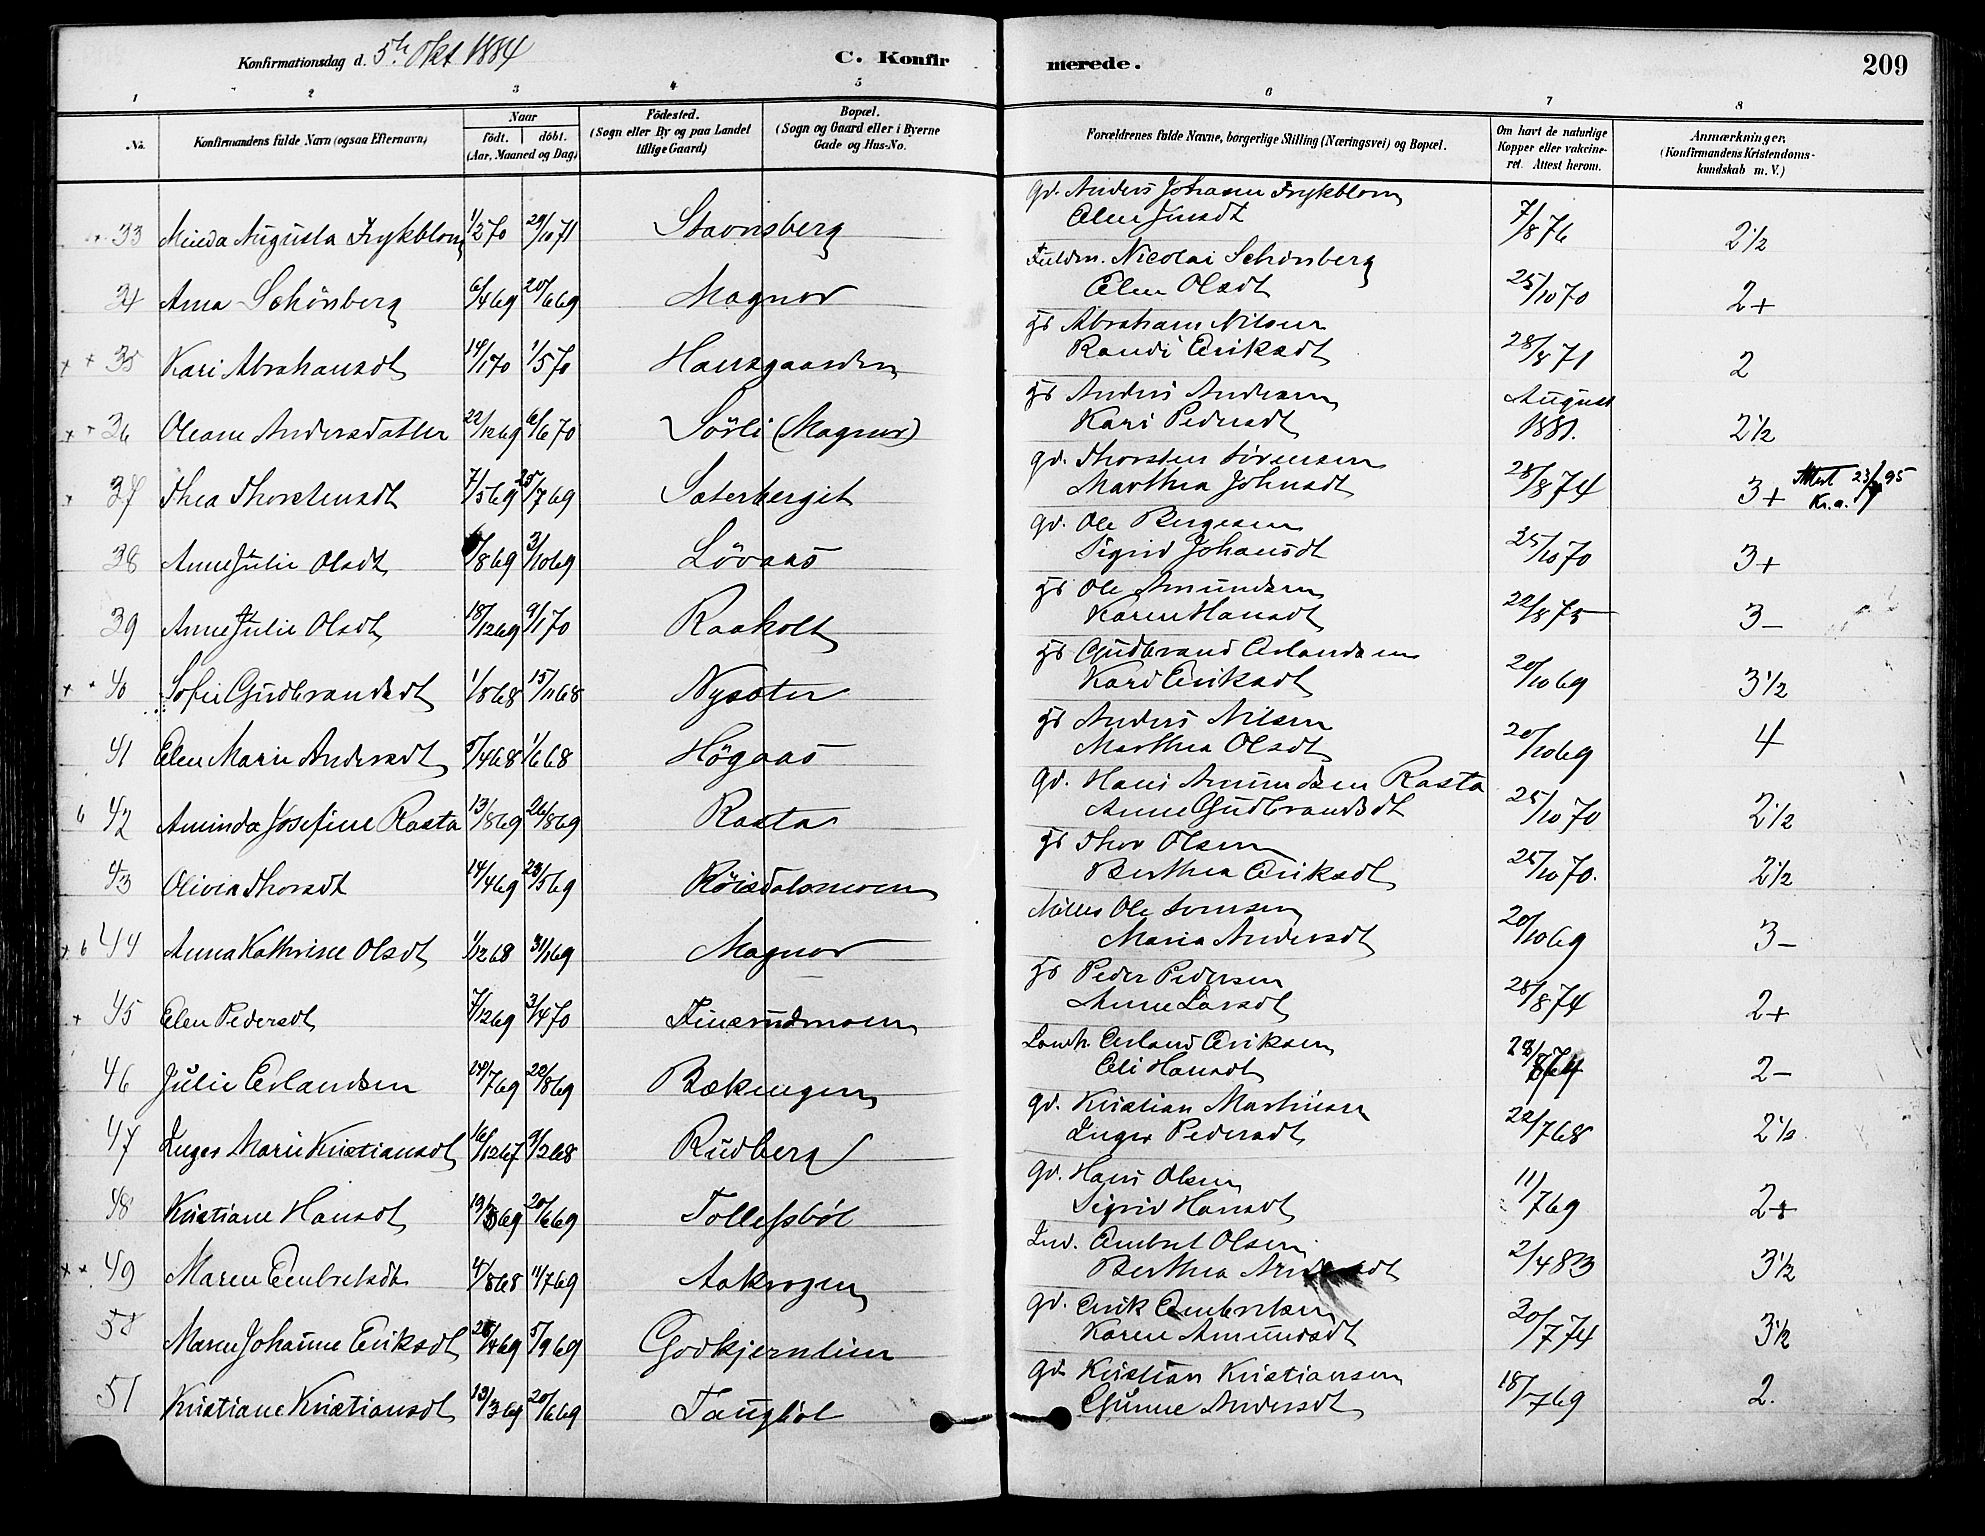 Konfirmationsdag d. 5te Okt 1884
C. Konfirmerede.
209
1 2 3 4 5 6 7 8
No.
Konfirmandens fulde Navn (ogsaa Efternavn)
Naar
født. døbt.
(Aar, Maaned og Dag)
Fødested.
(Sogn eller By og paa Landet
tillige Gaard)
Bopæl.
(Sogn og Gaard eller i Byerne
Gade og Hus-No.
Forældrenes fulde Navne, borgerlige Stilling (Næringsvei) og Bopæl.
Om havt de naturlige
Kopper eller vakcine-
ret. Attest herom.
Anmærkninger,
(Konfirmandens Kristendoms-
kundskab m. V.)
33 Minda Augusta Frykblom 1/2 70 29/10 71 Stavnsberg Gd. Anders Johansen Frykblom 7/8 76 2 1/2
34 Anna Schönsberg 6/4 69 20/6 69 Magnor Nicolai Schönsberg
Elen Olsdt 25/10 70 2+
++ 35 Kari Abrahamsdt 14/1 70 1/5 70 Hansgaarden Hs Abraham Nilsen
Randi Eriksdt 28/8 71 2
++ 36 Oleane Andersdatter 22/12 69 6/6 70 Sörli (Magnor) Hs Anders Andersen
Kari Pedersdt August
1881. 2 1/2
37 Thea Thorstensdt 7/5 69 25/7 69 Sæterberget Gd. Thorsten Sörensen
Marthea Johnsdt 28/8 74 3+ Attest
Kr.a.
38 Anne Julie Olsdt 3/10 69 Lövaas Gd. Ole Birgesen
Sigrid Johansdt 25/10 70 3+
39 Anne Julie Olsdt 18/12 69 9/1 70 Raaholt Hs Ole Amundsen
Karen Hansdt 22/8 75 3-
++ 40 Sofie Gudbrandsdt 1/8 68 15/11 68 Nysæter Hs Gudbrand Erlandsen
Kari Eriksdt 20/10 69 3 1/2
41 Elen Marie Andersdt 5/4 68 1/6 68 Högaas Hs Anders Nilsen
Marthea Olsdt 20/10 69 4
6 42 Aminda Josefine Rasta 13/8 69 26/8 69 Rasta Gd. Hans Amundsen Rasta
Anne Gudbrandsdt 25/10 70 2 1/2
43 Olivia Thorsdt 14/4 69 23/5 69 Röisdalsmoen Hs Thor Olsen
Berthea Eriksdt 25/10 70. 2 1/2
+6 44 Anna Kathrine Olsdt 1/12 68 31/1 69 Magnor Ole
Maria Andersdt 20/10 69 3-
+ 45 Elen Pedersdt 7/12 69 3/4 70 Finsrudmoen Hs Peder Pedersen
Anne Larsdt 28/8 74 2+
46 Julie Erlandsen 22/8 69 Bækengen Landh. Erland Eriksen
Eli Hansdt 2-
47 Inger Marie Kristiansdt 16/12 67 9/2 68 Rudberg Gd. Kristian Martinsen
Inger Pedersdt 22/7 68 2 1/2
48 Kristiane Hansdt 20/6 69 Tollefsböl Gd. Hans Olsen
Sigrid Hansdt 11/7 69 2+
++ 49 Maren Embretsdt 4/8 68 11/7 69 Aakrogen Ind. Embret Olsen
Berthea 2/4 83 3 1/2
50 Maren Johanne Eriksdt 5/9 69 Godkjernlien Gd. Erik Embretsen
Karen Amundsdt 20/7 74 3 1/2
51 Kristiane Kristiansdt 13/3 69 20/6 69 Taugböl Gd. Kristian Kristiansen
Gunne Andersdt 18/7 69 2.